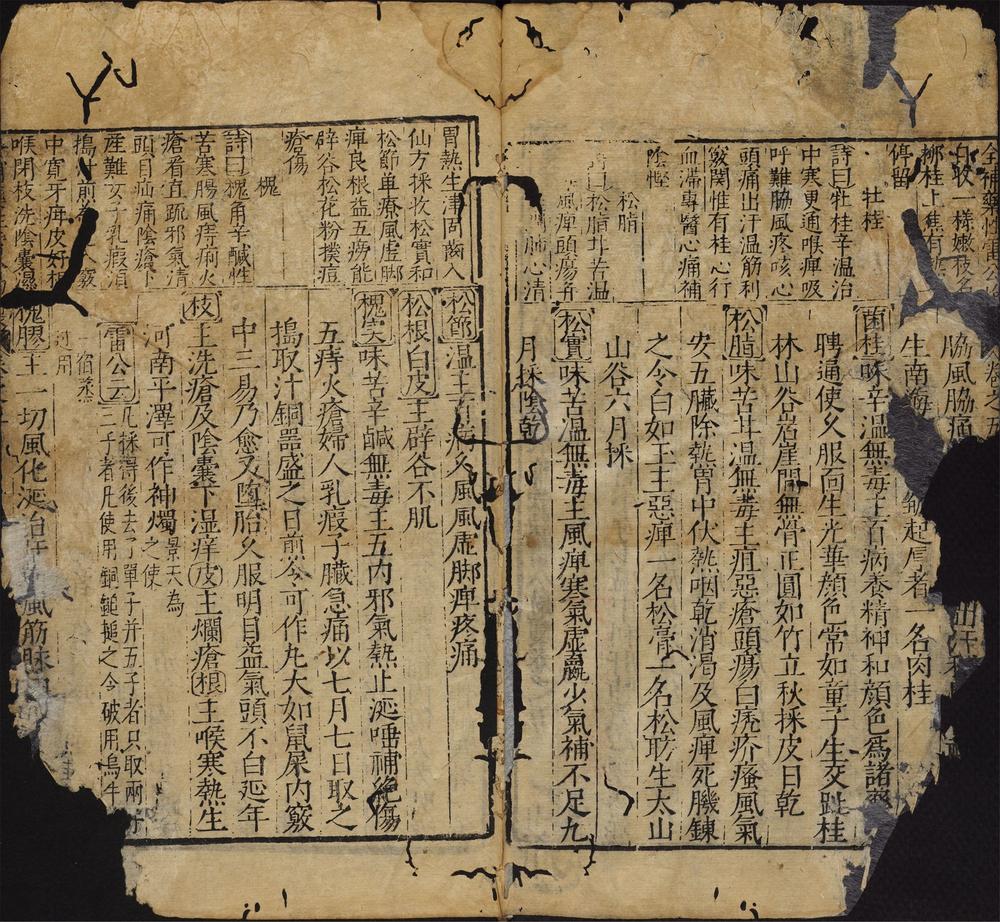 全補藥性雷公
白收一樣嫩枝名
柳桂上焦有
停留
牡桂
詩曰牡桂辛温治
中寒更通喉痺吸
呼難脇風疼咳心
頭痛出汗温筋利
竅関惟有桂心行
血滞專醫心痛補
陰慳
松脂
曰松脂甘苦温
風痺頭瘍
肺心清
脇風脇痛 出汗
生南海 皺起厚者一名肉桂
菌桂味辛温無毒主百病養精神和顔色爲諸藥
聘通使久服面生光華顔色常如童子生交趾桂
林山谷岩崖間無骨正圓如竹立秋採皮日乾
松脂味苦甘温無毒主疽惡瘡頭瘍白痥疥瘙風氣
安五臟除熱胃中伏熱咽乾消渇及風痺死肌錬
之令白如玉主惡痺一名松膏一名松肪生太山
山谷六月採
松實味苦温無毒主風痺寒氣虚羸少氣補不足九
月採陰乾
胃熱生津固齒入
仙方採收松實和
松節単療風虚脚
痺良根益五癆能
辟谷松花粉撲痘
瘡傷
槐
詩曰槐角辛鹹性
苦寒腸風痔痢火
瘡看宜疏邪氣清
頭目疝痛陰瘡下
産難女子乳瘕湏
搗汁煎 竅
中寛牙疼皮好相
喉閉枝洗陰囊濕
松節温主百病久風風虚脚痺疼痛
松根白皮主辟谷不肌
槐实味苦辛鹹無毒主五内邪氣熱止涎唾補絶傷
五痔火瘡婦人乳瘕子臟急痛以七月七日取之
搗取汁銅器盛之日煎令可作丸大如鼠屎内竅
中三易乃愈又墮胎久服明目益氣頭不白延年
枝主洗瘡及陰囊下湿痒皮主爛瘡根主喉寒熱生
河南平澤可作神燭景天為之使
雷公云凡採得後去了單子并五子者只取兩子
三子者凡使用銅鎚搥之令破用烏牛
一宿蒸過用
槐膠主一切風化涎治肝 風筋脉